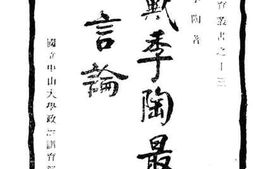 育叢書之十三
陶著
戴季陶最
言論
國立中山大學政治訓育